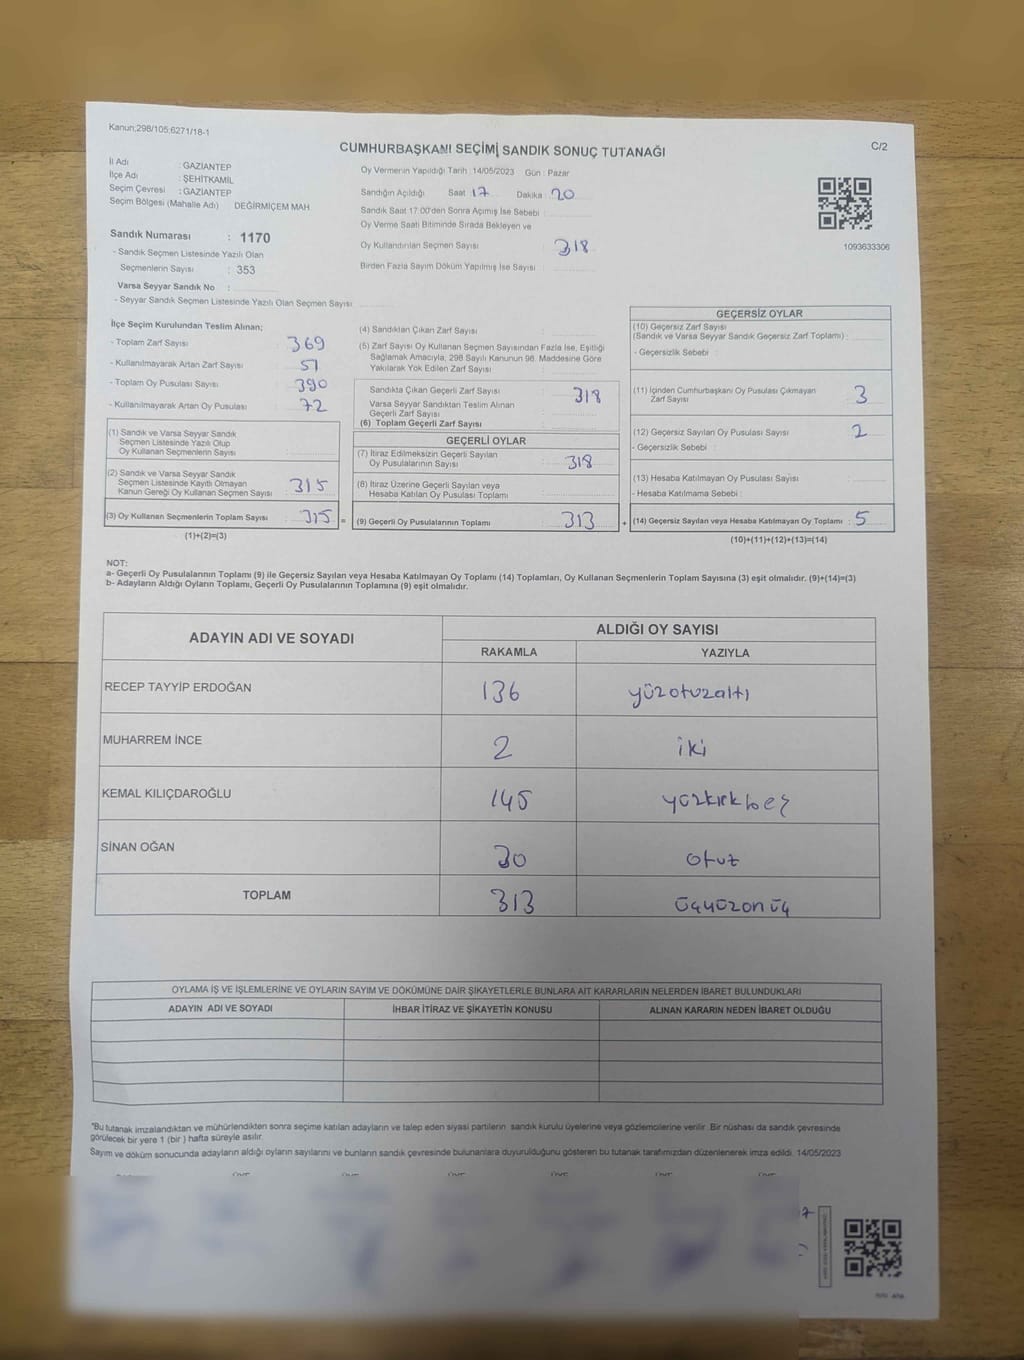 Kanun;298/105;6271/18-1
CUMHURBAŞKANI SEÇİMİ SANDIK SONUÇ TUTANAĞI
C/2
İl Adı : GAZİANTEP
İlçe Adı : ŞEHİTKAMİL
Seçim Çevresi : GAZİANTEP
Seçim Bölgesi (Mahalle Adı) DEĞİRMİÇEM MAH
Sandık Numarası : 1170
- Sandık Seçmen Listesinde Yazılı Olan
Seçmenlerin Sayısı : 353
Varsa Seyyar Sandık No :
- Seyyar Sandık Seçmen Listesinde Yazılı Olan Seçmen Sayısı
Oy Vermenin Yapıldığı Tarih :14/05/2023 Gün : Pazar
Sandığın Açıldığı Saat 17 Dakika : 20
Sandık Saat 17.00'den Sonra Açımış İse Sebebi :
Oy Verme Saati Bitiminde Sırada Bekleyen ve
Oy Kullandırılan Seçmen Sayısı : 318
Birden Fazla Sayım Döküm Yapılmış İse Sayısı :
1093633306
İlçe Seçim Kurulundan Teslim Alınan;
- Toplam Zarf Sayısı : 369
- Kullanılmayarak Artan Zarf Sayısı : 51
- Toplam Oy Pusulası Sayısı : 390
- Kullanılmayarak Artan Oy Pusulası : 72
(1) Sandık ve Varsa Seyyar Sandık
Seçmen Listesinde Yazılı Olup
Oy Kullanan Seçmenlerin Sayısı :
(2) Sandık ve Varsa Seyyar Sandık
Seçmen Listesinde Kayıtlı Olmayan
Kanun Gereği Oy Kullanan Seçmen Sayısı : 315
(3) Oy Kullanan Seçmenlerin Toplam Sayısı : 315 =
(1)+(2)=(3)
(4) Sandıktan Çıkan Zarf Sayısı :
(5) Zarf Sayısı Oy Kullanan Seçmen Sayısından Fazla İse, Eşitliği
Sağlamak Amacıyla, 298 Sayılı Kanunun 98. Maddesine Göre
Yakılarak Yok Edilen Zarf Sayısı :
Sandıkta Çıkan Geçerli Zarf Sayısı : 318
Varsa Seyyar Sandıktan Teslim Alınan
Geçerli Zarf Sayısı :
(6) Toplam Geçerli Zarf Sayısı :
GEÇERLİ OYLAR
(7) İtiraz Edilmeksizin Geçerli Sayılan
Oy Pusulalarının Sayısı : 318
(8) İtiraz Üzerine Geçerli Sayılan veya
Hesaba Katılan Oy Pusulası Toplamı :
(9) Geçerli Oy Pusulalarının Toplamı : 313 +
GEÇERSİZ OYLAR
(10) Geçersiz Zarf Sayısı
(Sandık ve Varsa Seyyar Sandık Geçersiz Zarf Toplamı) :
- Geçersizlik Sebebi :
(11) İçinden Cumhurbaşkanı Oy Pusulası Çıkmayan
Zarf Sayısı : 3
(12) Geçersiz Sayılan Oy Pusulası Sayısı : 2
- Geçersizlik Sebebi :
(13) Hesaba Katılmayan Oy Pusulası Sayısı :
- Hesaba Katılmama Sebebi :
(14) Geçersiz Sayılan veya Hesaba Katılmayan Oy Toplamı : 5
(10)+(11)+(12)+(13)=(14)
NOT:
a- Geçerli Oy Pusulalarının Toplamı (9) ile Geçersiz Sayılan veya Hesaba Katılmayan Oy Toplamı (14) Toplamları, Oy Kullanan Seçmenlerin Toplam Sayısına (3) eşit olmalıdır. (9)+(14)=(3)
b- Adayların Aldığı Oyların Toplamı, Geçerli Oy Pusulalarının Toplamına (9) eşit olmalıdır.
ADAYIN ADI VE SOYADI
ALDIĞI OY SAYISI
RAKAMLA YAZIYLA
RECEP TAYYİP ERDOĞAN 136 yüzotuzaltı
MUHARREM İNCE 2 iki
KEMAL KILIÇDAROĞLU 145 yüzkırkbeş
SİNAN OĞAN 30 otuz
TOPLAM 313 üçyüzonüç
OYLAMA İŞ VE İŞLEMLERİNE VE OYLARIN SAYIM VE DÖKÜMÜNE DAİR ŞİKAYETLERLE BUNLARA AİT KARARLARIN NELERDEN İBARET BULUNDUKLARI
ADAYIN ADI VE SOYADI İHBAR İTİRAZ VE ŞİKAYETİN KONUSU ALINAN KARARIN NEDEN İBARET OLDUĞU
*Bu tutanak imzalandıktan ve mühürlendikten sonra seçime katılan adayların ve talep eden siyasi partilerin sandık kurulu üyelerine veya gözlemcilerine verilir. Bir nüshası da sandık çevresinde
görülecek bir yere 1 (bir ) hafta süreyle asılır.
Sayım ve döküm sonucunda adayların aldığı oyların sayılarını ve bunların sandık çevresinde bulunanlara duyurulduğunu gösteren bu tutanak tarafımızdan düzenlenerek imza edildi. 14/05/2023